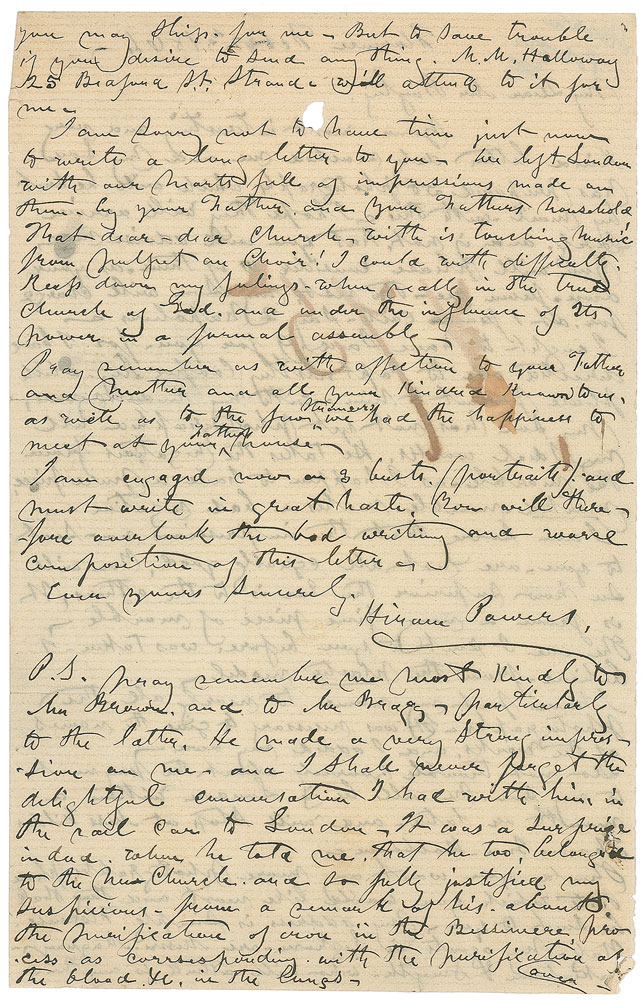 you may ship for me - But to save trouble
if you desire to send any thing. M. M. Holloway
25 Bedford St. Strand - will attend to it for
me -
I am sorry not to have time just now
to write a long letter to you - We left London
with our hearts full of impressions made on
them. by your Father. and your Fathers household
That dear - dear Church - with its touching music
from pulpit an Choir! I could with difficulty.
Keep down my feelings. when really in the true
Church of God. and under the influence of its
power in a formal assembly -
Pray remember us with affection to your Father
and Mother and all your Kindred Known to us.
as well as to the few strangers we had the happiness to
meet at your Father's house -
I am engaged now on 3 busts. (portraits). and
must write in great haste. You will there-
-fore overlook the bad writing and worse
composition of this letter -
Ever yours Sincerely.
Hiram Powers.
P.S. pray remember me most Kindly to
Mr Brown. and to Mr Bragg - particularly
to the latter. He made a very strong impres-
-sion on me - and I shall never forget the
delightful conversation I had with him in
the rail car to London - It was a surprise
indeed. when he told me. that he too, belonged
to the New Church. and so fully justified my
suspicions - from a remark of his. about
the purification of iron in the Bessimere pro
-cess. as corresponding. with the purification of
the blood. &c. in the lungs -
over